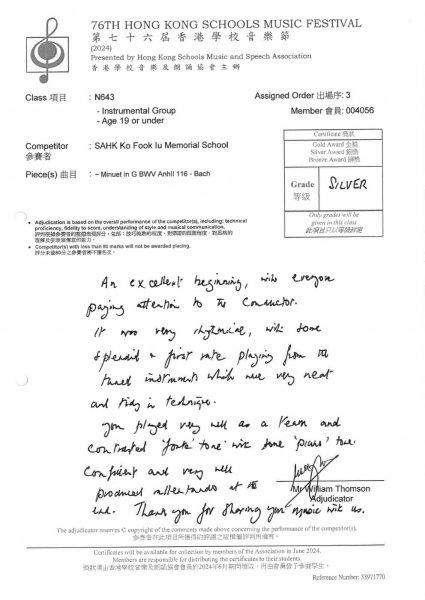 76TH HONG KONG SCHOOLS MUSIC FESTIVAL
第七十六屆香港學校音樂節
(2024)
Presented by Hong Kong Schools Music and Speech Association
香港學校音樂及朗誦協會主辦
Class 項目 : N643
Assigned Order 出場序: 3
- Instrumental Group
- Age 19 or under
Member 會員: 004056
Competitor : SAHK Ko Fook Iu Memorial School
參賽者
Piece(s) 曲目 : ~ Minuet in G BWV Anhll 116 - Bach
Certificate 獎狀
Gold Award 金獎
Silver Award 銀獎
Bronze Award 銅獎
Grade
等級
SILVER
Only grades will be
given in this class
此項目只以等級評定
• Adjudication is based on the overall performance of the competitor(s), including: technical
proficiency, fidelity to score, understanding of style and musical communication.
• Competitor(s) with less than 80 marks will not be awarded placing.
An excellent beginning, with everyone
paying attention to the Conductor.
It was very rhythmical, with some
splendid & first rate playing from the
tuned instruments which were very neat
and tidy in technique.
You played very well as a team and
contrasted 'forte' tone with some 'piano' tone.
Confident and very well
produced rallentando at the
end. Thank you for sharing your music with us.
Mr William Thomson
Adjudicator
The adjudicator reserves © copyright of the comments made above concerning the performance of the competitor(s).
Certificates will be available for collection by members of the Association in June 2024.
Members are responsible for distributing the certificates to their students.
獎狀將由香港學校音樂及朗誦協會於2024年6月期間領取，再由會員發予參賽學生。
Reference Number: 33971770